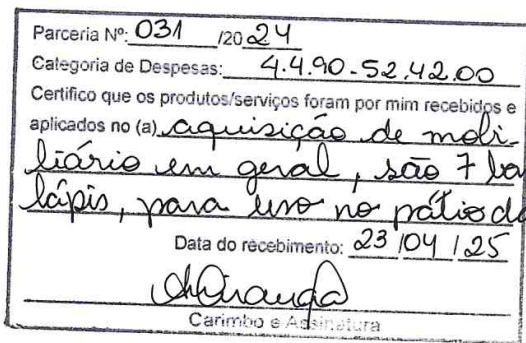 Parceria Nº: 031 /2024
Categoria de Despesas: 4.4.90-52.42.00
Certifico que os produtos/serviços foram por mim recebidos e
aplicados no (a) aquisição de mobi-
liário em geral, são 7 ba
lápis, para uso no pátio do
Data do recebimento: 23/04/25
Carimbo e Assinatura